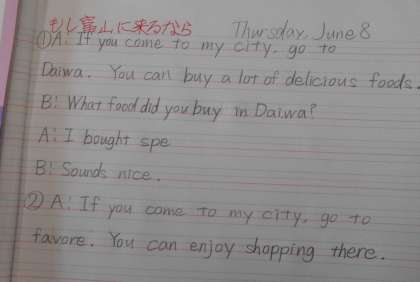 もし富山に来るなら Thursday, June 8
①A: If you come to my city, go to
Daiwa. You can buy a lot of delicious foods.
B: What food did you buy in Daiwa?
A: I bought spe
B: Sounds nice.
②A: If you come to my city, go to
favore. You can enjoy shopping there.